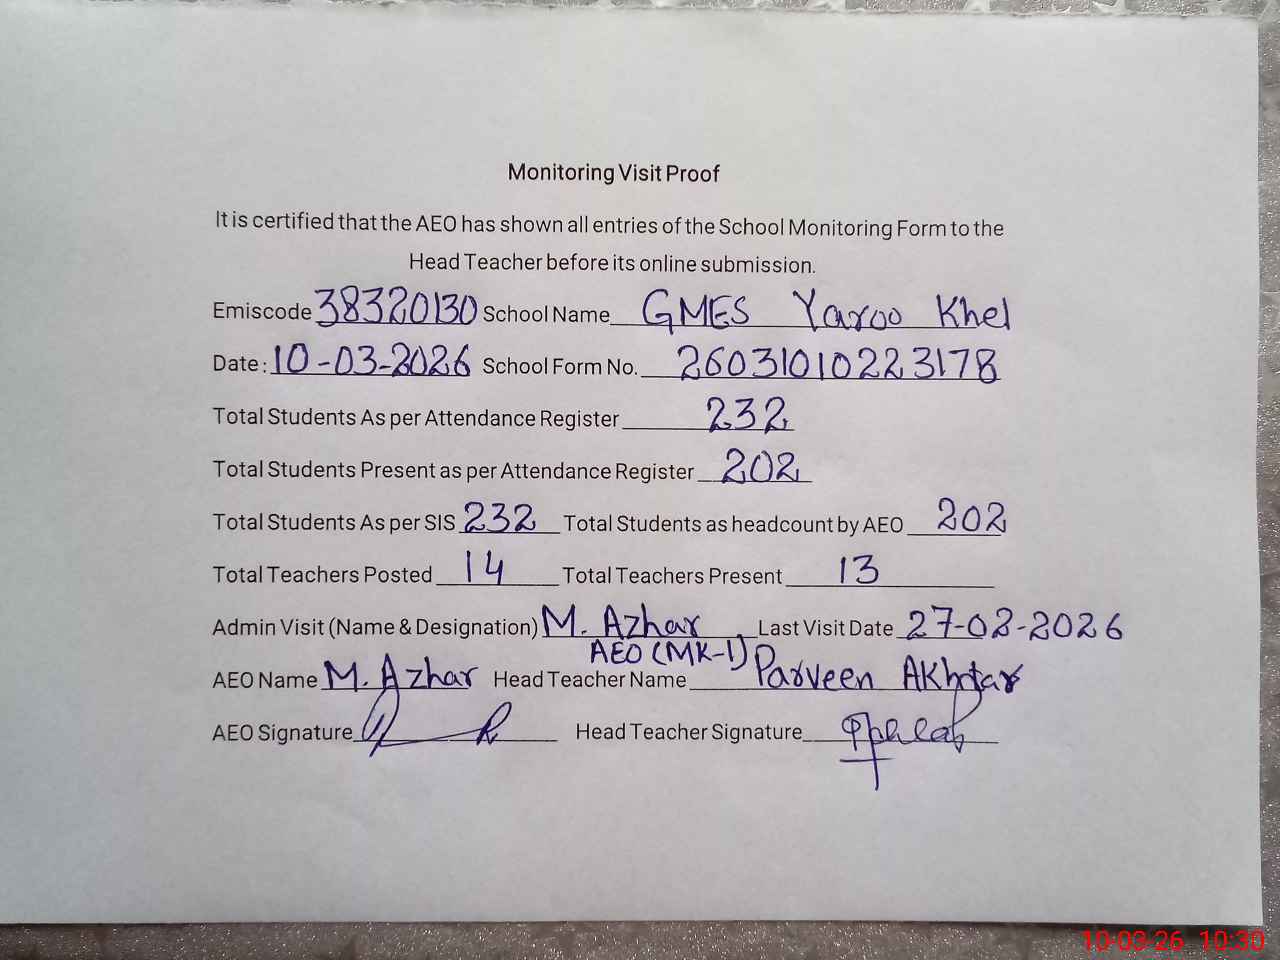 Monitoring Visit Proof
It is certified that the AEO has shown all entries of the School Monitoring Form to the
Head Teacher before its online submission.
Emiscode 38320130 School Name GMES Yaroo Khel
Date: 10-03-2026 School Form No. 26031010223178
Total Students As per Attendance Register 232
Total Students Present as per Attendance Register 202
Total Students As per SIS 232 Total Students as headcount by AEO 202
Total Teachers Posted 14 Total Teachers Present 13
Admin Visit (Name & Designation) M. Azhar Last Visit Date 27-02-2026
AEO (MK-1)
AEO Name M. Azhar Head Teacher Name Parveen Akhtar
AEO Signature Head Teacher Signature
10-03-26 10:30